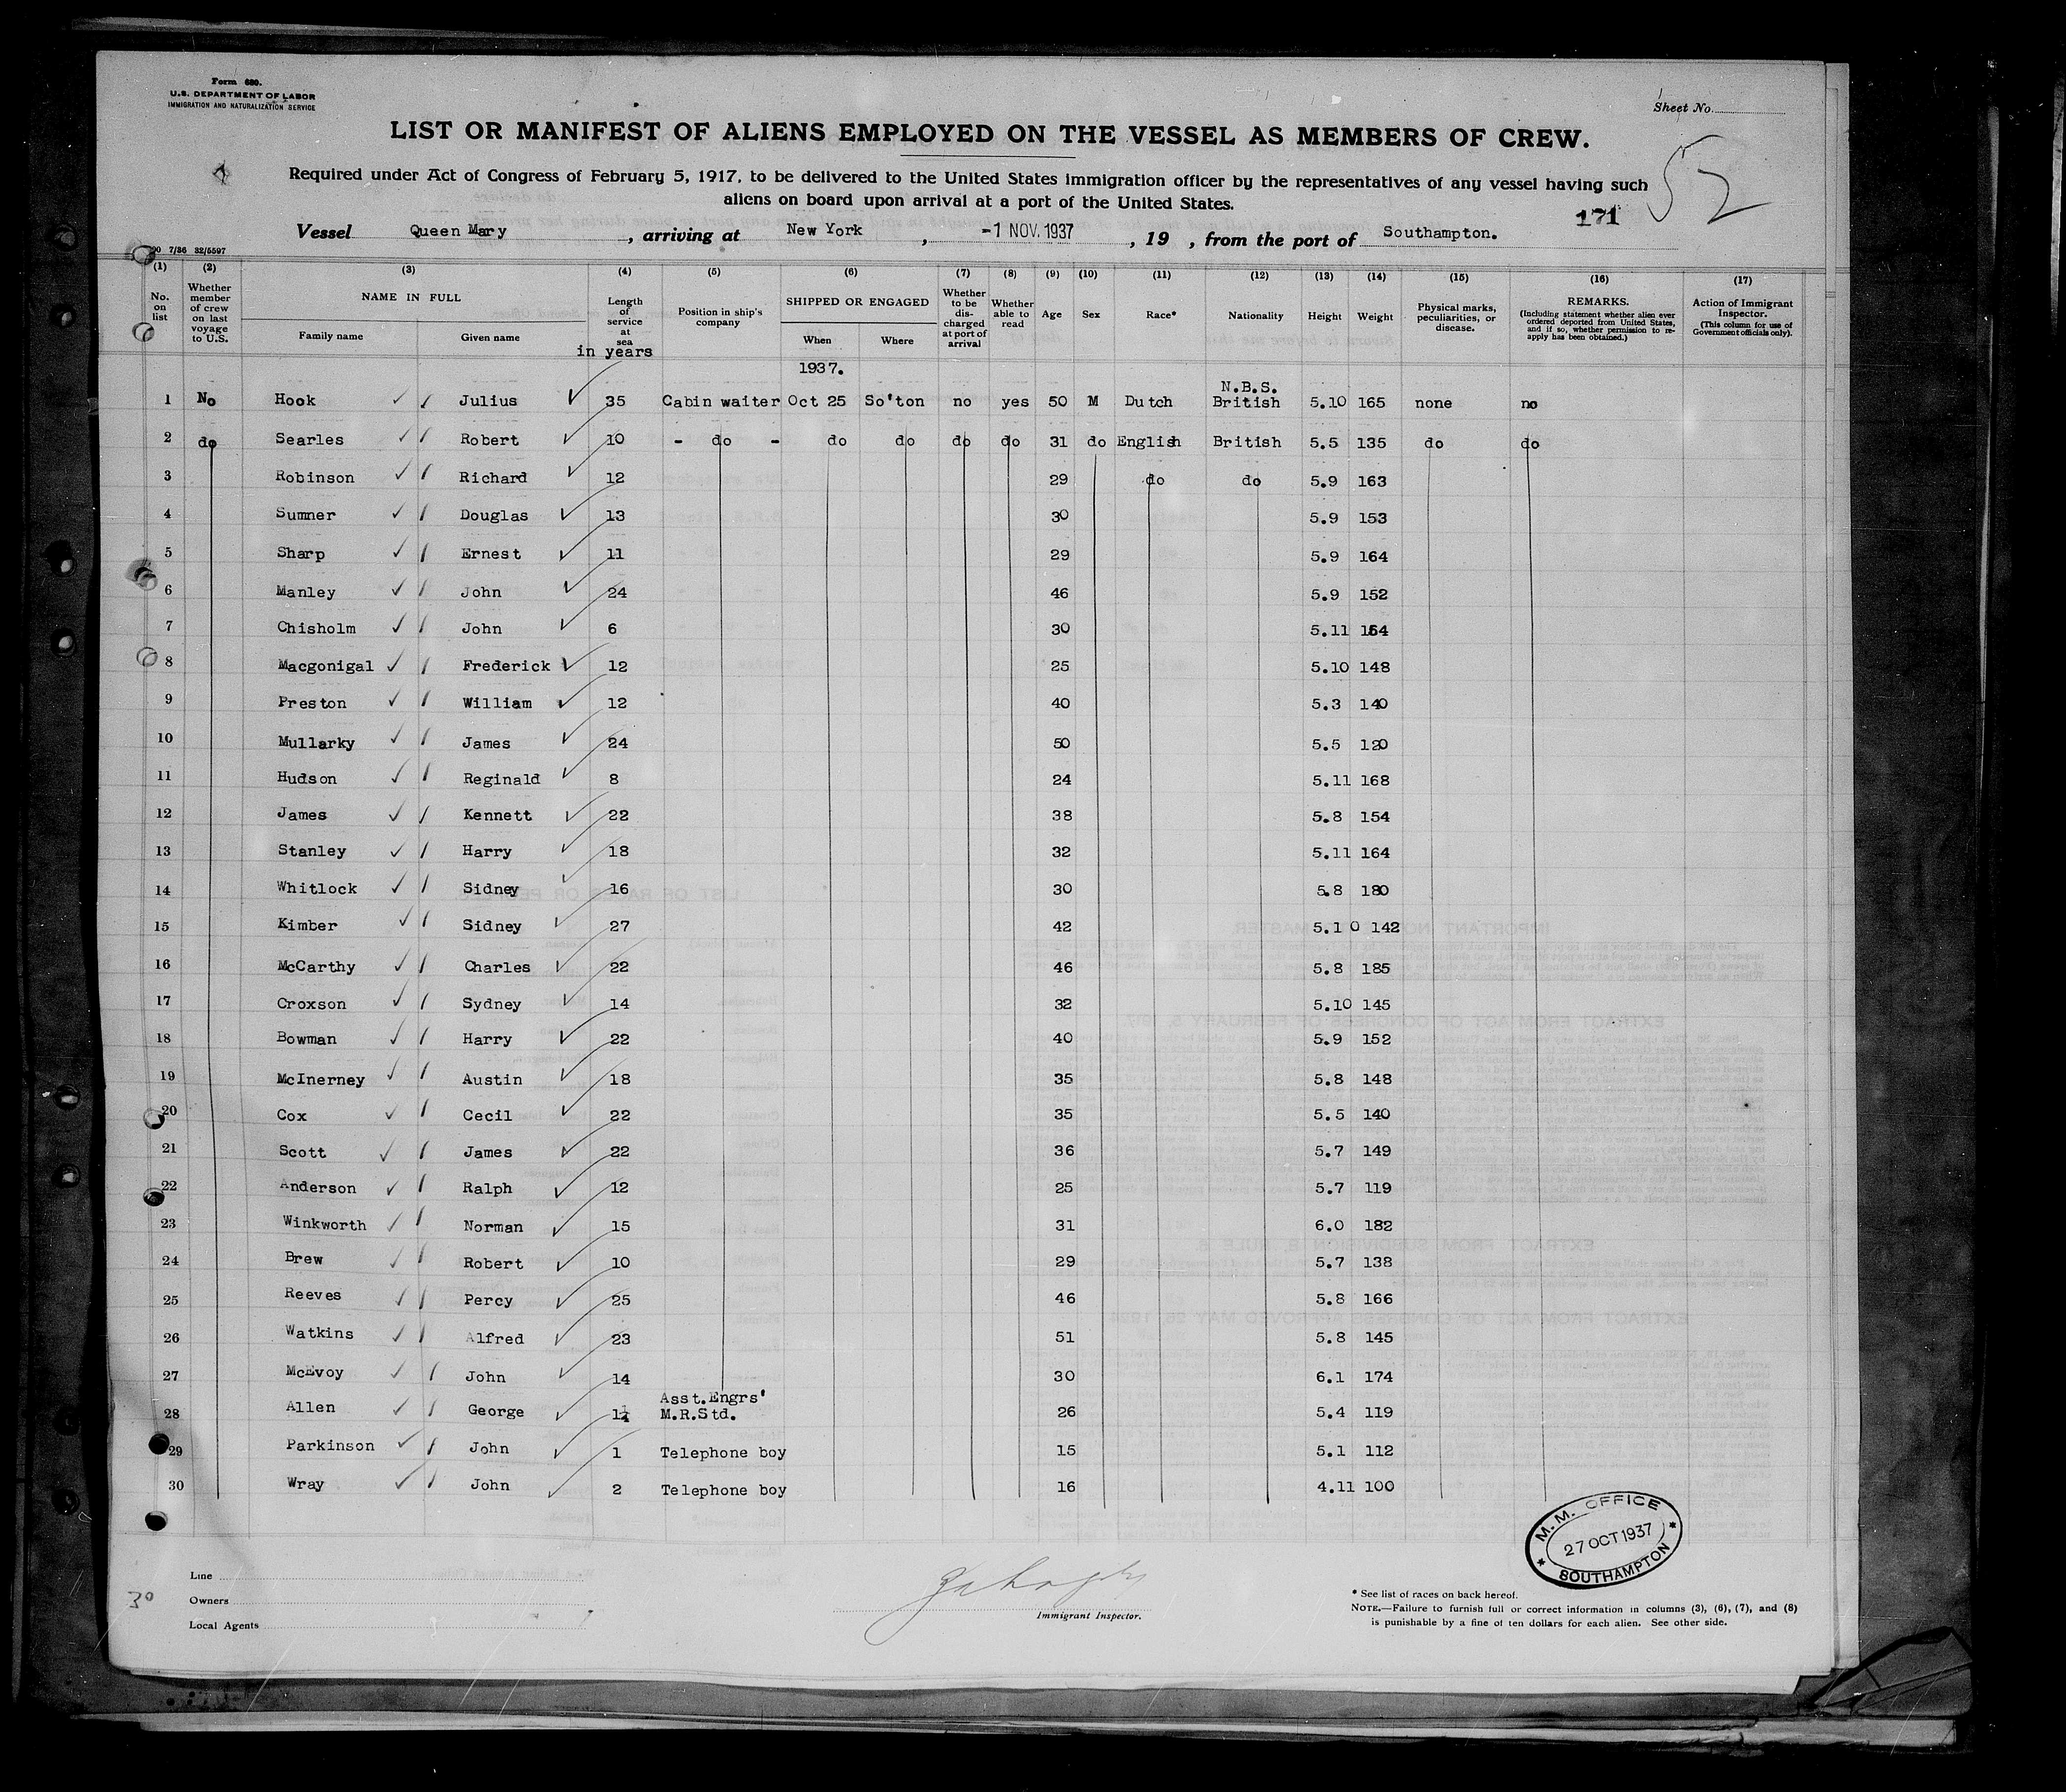 Form 680.
U.S. DEPARTMENT OF LABOR
IMMIGRATION AND NATURALIZATION SERVICE
Sheet No.
LIST OR MANIFEST OF ALIENS EMPLOYED ON THE VESSEL AS MEMBERS OF CREW.
52
Required under Act of Congress of February 5, 1917, to be delivered to the United States immigration officer by the representatives of any vessel having such
aliens on board upon arrival at a port of the United States.
171
Vessel Queen Mary, arriving at New York, -1 NOV. 1937, 19 , from the port of Southampton.
7/36 32/5597
(1) (2) (3) (4) (5) (6) (7) (8) (9) (10) (11) (12) (13) (14) (15) (16) (17)
No. on list
Whether member of crew on last voyage to U.S.
NAME IN FULL
Family name Given name
Length of service at sea
in years
Position in ship's company
SHIPPED OR ENGAGED
When Where
Whether to be discharged at port of arrival
Whether able to read
Age Sex Race* Nationality Height Weight
Physical marks, peculiarities, or disease.
REMARKS.
(Including statement whether alien ever ordered deported from United States, and if so, whether permission to reapply has been obtained.)
Action of Immigrant Inspector.
(This column for use of Government officials only).
1937.
N.B.S.
1 No Hook Julius 35 Cabin waiter Oct 25 So'ton no yes 50 M Dutch British 5.10 165 none no
2 do Searles Robert 10 - do - do do do do 31 do English British 5.5 135 do do
3 Robinson Richard 12 29 do do 5.9 163
4 Sumner Douglas 13 30 5.9 153
5 Sharp Ernest 11 29 5.9 164
6 Manley John 24 46 5.9 152
7 Chisholm John 6 30 5.11 164
8 Macgonigal Frederick 12 25 5.10 148
9 Preston William 12 40 5.3 140
10 Mullarky James 24 50 5.5 120
11 Hudson Reginald 8 24 5.11 168
12 James Kennett 22 38 5.8 154
13 Stanley Harry 18 32 5.11 164
14 Whitlock Sidney 16 30 5.8 180
15 Kimber Sidney 27 42 5.10 142
16 McCarthy Charles 22 46 5.8 185
17 Croxson Sydney 14 32 5.10 145
18 Bowman Harry 22 40 5.9 152
19 McInerney Austin 18 35 5.8 148
20 Cox Cecil 22 35 5.5 140
21 Scott James 22 36 5.7 149
22 Anderson Ralph 12 25 5.7 119
23 Winkworth Norman 15 31 6.0 182
24 Brew Robert 10 29 5.7 138
25 Reeves Percy 25 46 5.8 166
26 Watkins Alfred 23 51 5.8 145
27 McEvoy John 14 30 6.1 174
Asst.Engrs'
28 Allen George M.R.Std. 26 5.4 119
29 Parkinson John 1 Telephone boy 15 5.1 112
30 Wray John 2 Telephone boy 16 4.11 100
M.M. OFFICE
27 OCT 1937
SOUTHAMPTON
30
Line
Owners
Local Agents
Immigrant Inspector.
* See list of races on back hereof.
NOTE.—Failure to furnish full or correct information in columns (3), (6), (7), and (8)
is punishable by a fine of ten dollars for each alien. See other side.